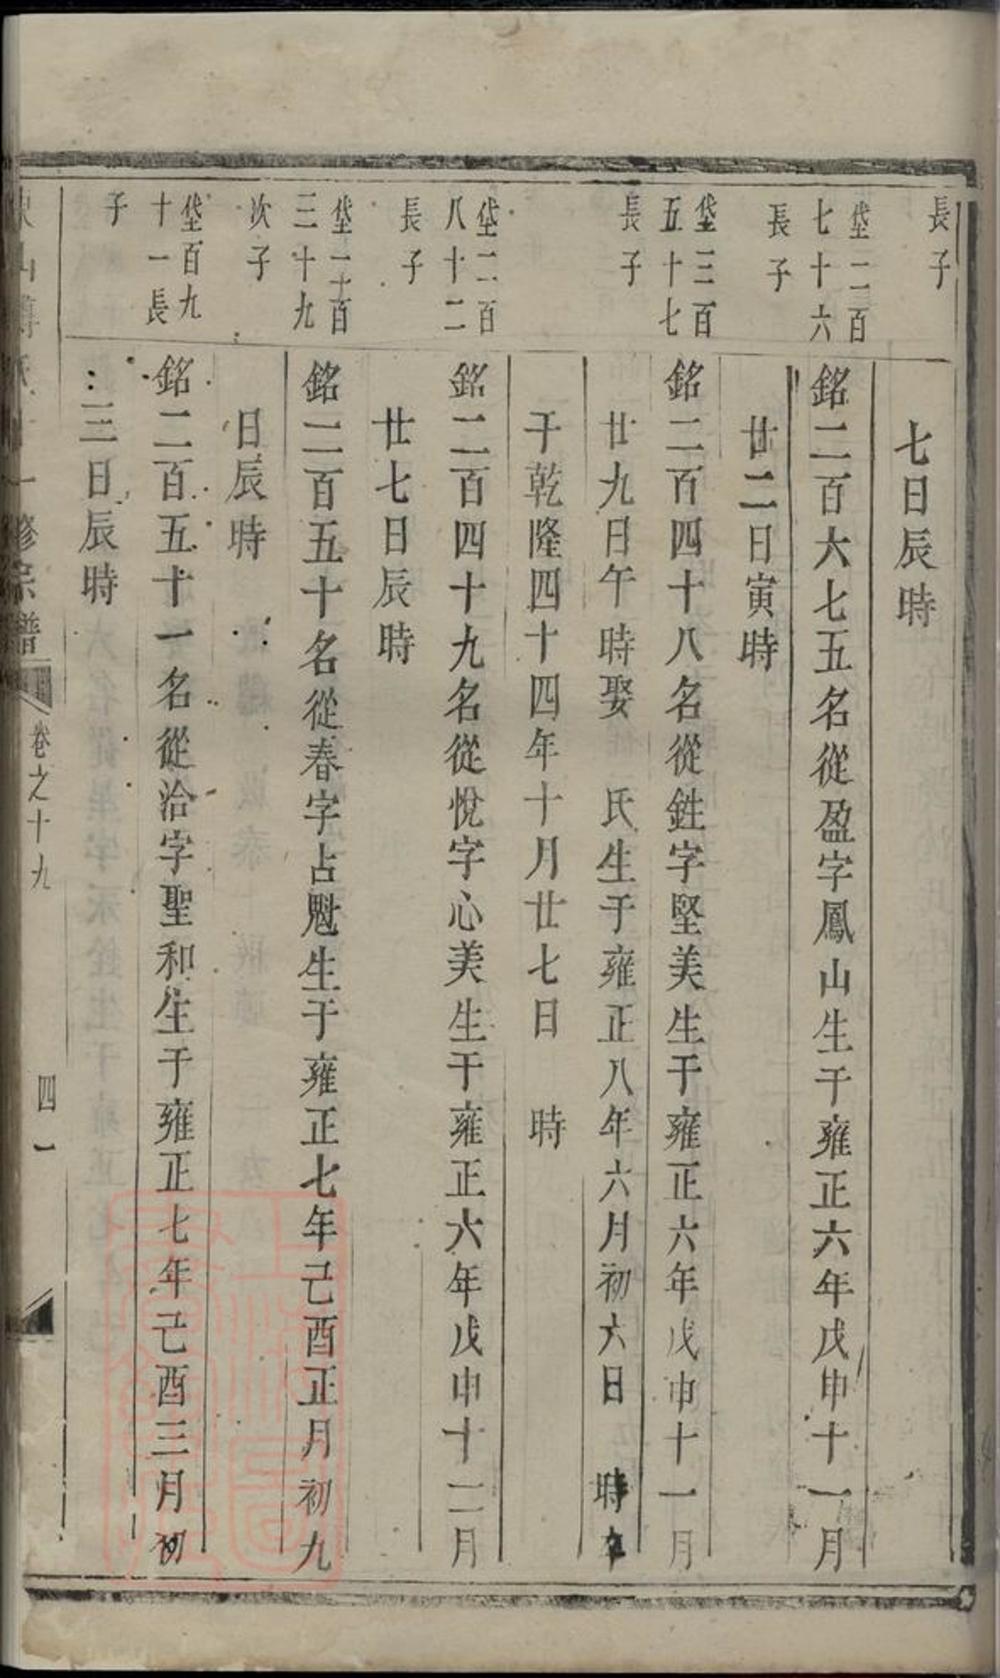 長子
七日辰時
垡二百
七十六
長子
銘二百六七五名從盈字鳳山生于雍正六年戊申十一月
廿二日寅時
垡三百
五十七
長子
銘二百四十八名從鉎字堅美生于雍正六年戊申十一月
廿九日午時娶 氏生于雍正八年六月初六日 時
于乾隆四十四年十月廿七日 時
垡二百
八十二
長子
銘二百四十九名從悅字心美生于雍正六年戊申十二月
廿七日辰時
垡二百
三十九
次子
銘二百五十名從春字占魁生于雍正七年己酉正月初九
日辰時
垡百九
十一長
子
銘二百五十一名從洽字聖和生于雍正七年己酉三月初
三日辰時
修宗譜 卷之十九 四一